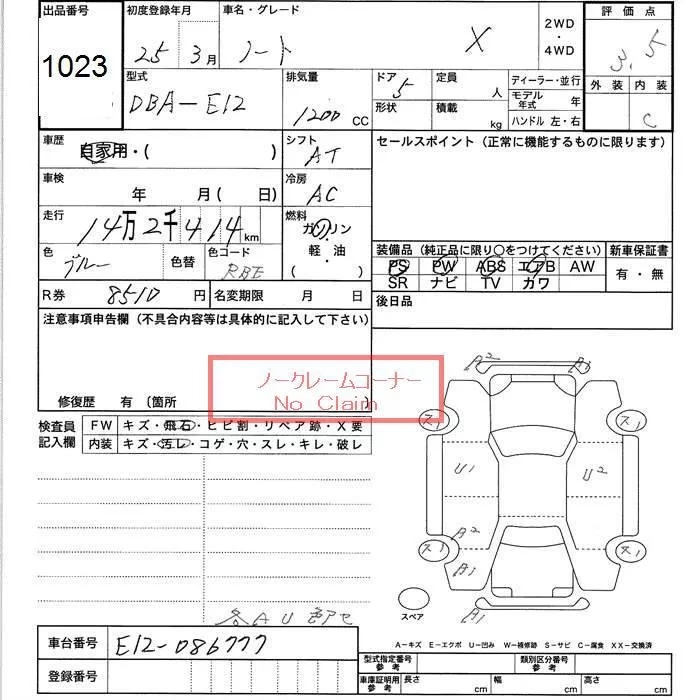 出品番号 初度登録年月 車名・グレード 2WD・4WD 評価点
1023 25年 3月 ノート X 3.5
型式 排気量 ドア 定員 人 ディーラー・並行 外装 内装
DBA-E12 1200 CC 5 形状 積載 kg モデル年式 年 ハンドル 左・右 C
車歴 自家用・( ) シフト AT セールスポイント(正常に機能するものに限ります)
車検 年 月( 日) 冷房 AC
走行 14万2千414km 燃料 ガソリン・軽油 ( )
色 ブルー 色替 色コード RBE
装備品(純正品に限り○をつけてください) 新車保証書
PS PW ABS エアB AW 有・無
SR ナビ TV カワ
R券 8510円 名変期限 月 日 後日品
注意事項申告欄(不具合内容等は具体的に記入して下さい)
ノークレームコーナー
No Claim
修復歴 有(箇所
検査員記入欄 FW キズ・飛石・ヒビ割・リペア跡・X要
内装 キズ・汚レ・コゲ・穴・スレ・キレ・破レ
A2 A1
ス1 ス1
U1 U2
A2
ス1 ス1
A1
スペア A1
各AU
A-キズ E-エクボ U-凹み W-補修跡 S-サビ C-腐食 XX-交換済
車台番号 E12-086777
型式指定番号 参考 類別区分番号 参考
登録番号
車庫証明用 参考 長さ cm 幅 cm 高さ cm